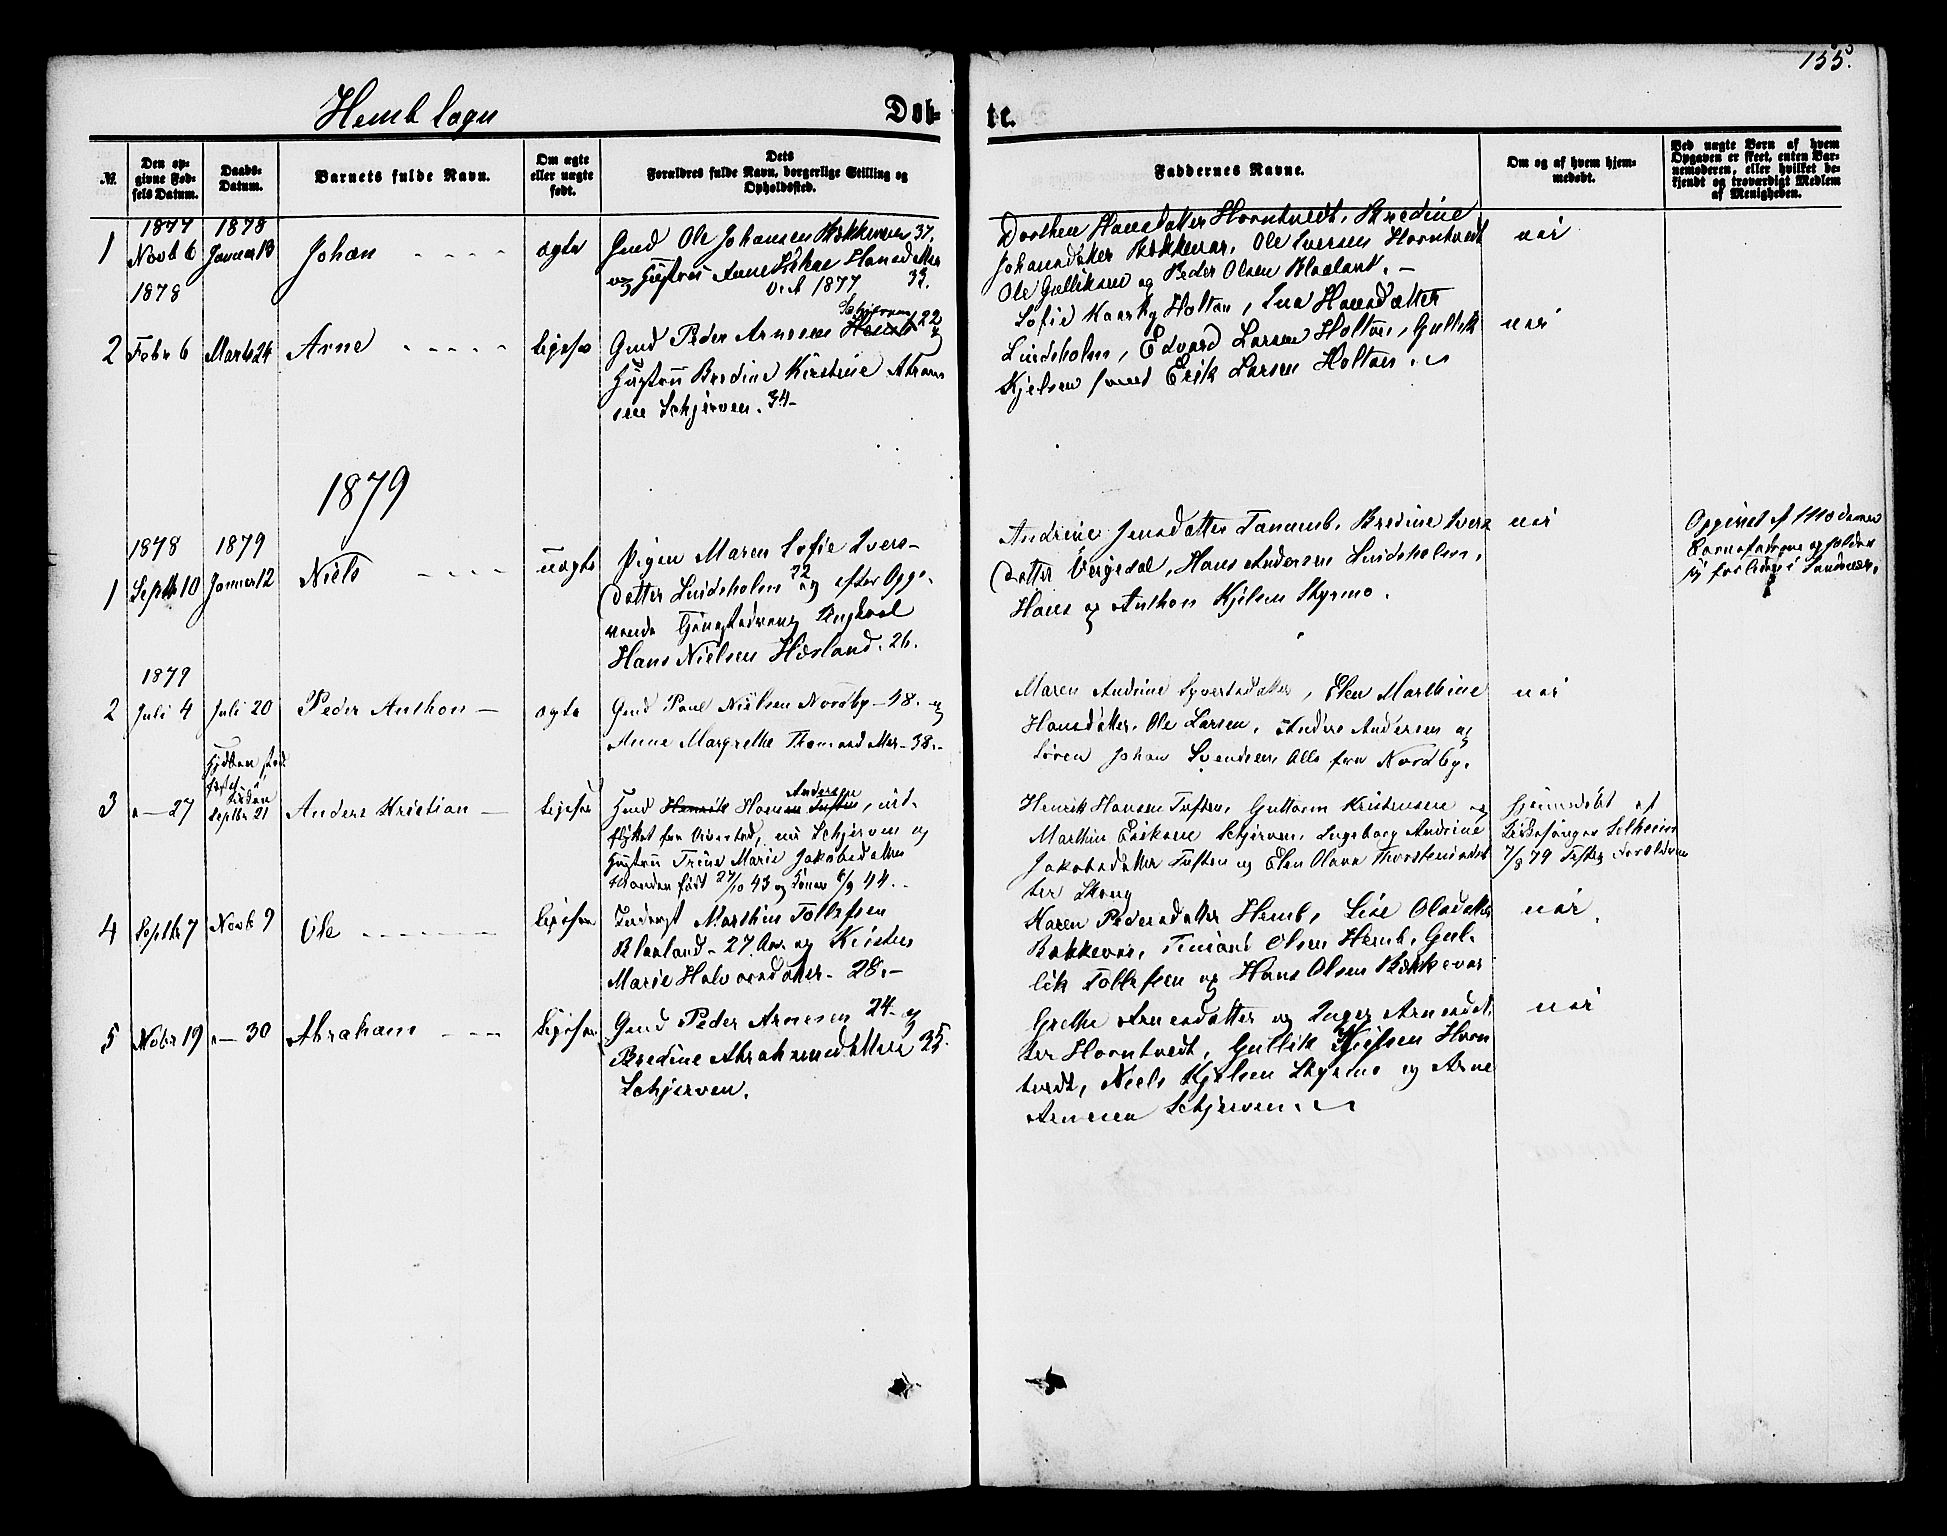 155.
Hemb Sogn
Døb-
te.
№.
Den op-
givne Fød-
sels Datum.
Daabs-
Datum.
Barnets fulde Navn.
Om ægte
eller uægte
født.
Dets
Forældres fulde Navn, borgerlige Stilling og
Opholdssted.
Faddernes Navne.
Om og af hvem hjem-
medøbt.
Ved uægte Børn af hvem
Opgaven er skeet, enten Bar-
nemoderen, eller hvilket be-
kjendt og troværdigt Medlem
af Menigheden.
1877 1878
1 Novb 6 Januar 13 Johan ægte
Gmd Ole Johansen Bækkevar 37.
og Hustru Anne Hansdatter
Viet 1877 33.
Dorthea Hansdatter Horntvedt, Bredine
Johansdatter Bækkevar, Ole Iversen Horntvedt
Ole Gulliksen og Peder Olsen Blaaland. –
nei
1878
2 Febr 6 Marts 24 Arne ligesaa
Schjerven
Gmd Peder Arnesen Hemb 22 og
Hustru Bredine Kirstine Abram
sen Schjerven. 34 –
Sofie Holtan, Ina Hansdatter
Lindsholm, Edvard Larsen Holtan, Gullik
Kjelsen samt Erik Larsen Holtan.
nei
1879
1878 1879
1 Septbr 10 Januar 12 Niels uægte
Pigen Maren Sofie Ivers-
datter Lindsholm 22 og efter Opgi-
vende Ungkarl
Hans Nielsen Hæsland. 26.
Andrine Jensdatter Tanumb, Bredine Ivers
datter Vergedal, Hans Andersen Lindsholm,
Hans og Anthon Kjelsen Skysmo.
nei
Opgivet af Moderen
Barnefaderen opholder
sig for tiden i Sandevær.
1879
2 Juli 4 Juli 20 Peder Anthon – ægte
Gmd Paul Nielsen Nordby – 48. og
Anne Margrethe Thomasdatter – 38. –
Maren Andrine Syvertsdatter, Elen Marthine
Hansdatter, Ole Larsen, Anders Andersen og
Søren Johan Svendsen Alle fra Nordby.
nei
Hjdøben stad
fæstet i
Kirken
3 " – 27 Septbr 21 Anders Kristian – ligesaa
Andersen
Hmd Henrik Hansen Tuften, ud-
flyttet fra , nu Schjerven og
Hustru Trine Marie Jakobsdatter
Manden født 27/10 43 og Konen 8/9 44. –
Henrik Hansen Tuften, Guttorm Kristensen og
Marthin Eriksen Schjerven, Ingeborg Andrine
Jakobsdatter Tuften og Elen Olava Thorstensdat
ter Skoug
hjemmedøbt af
Kirkesanger Solheim
7/8 79 Forældrene
4 Septbr 7 Novb 9 Ole ligesaa
Inderst Marthin Tollefsen
Blaaland – 27. Aar og Kirsten
Marie Halvorsdatter – 28. –
Karen Pedersdatter Hemb, Lise Olsdatter
Bækkevar, Olsen Hemb, Gul-
lik Tollefsen og Hans Olsen Bækkevar
nei.
5 Nobr 19 " – 30 Abraham ligesaa
Gmd Peder Arnesen 24 – og
Bredine Abrahamsdatter 35.
Schjerven.
Grethe Arnesdatter og Inger Arnesdat
ter Horntvedt, Gullik Kjelsen Horn
tvedt, Niels Kjelsen Skysmo og Arne
Arnesen Schjerven.
nei